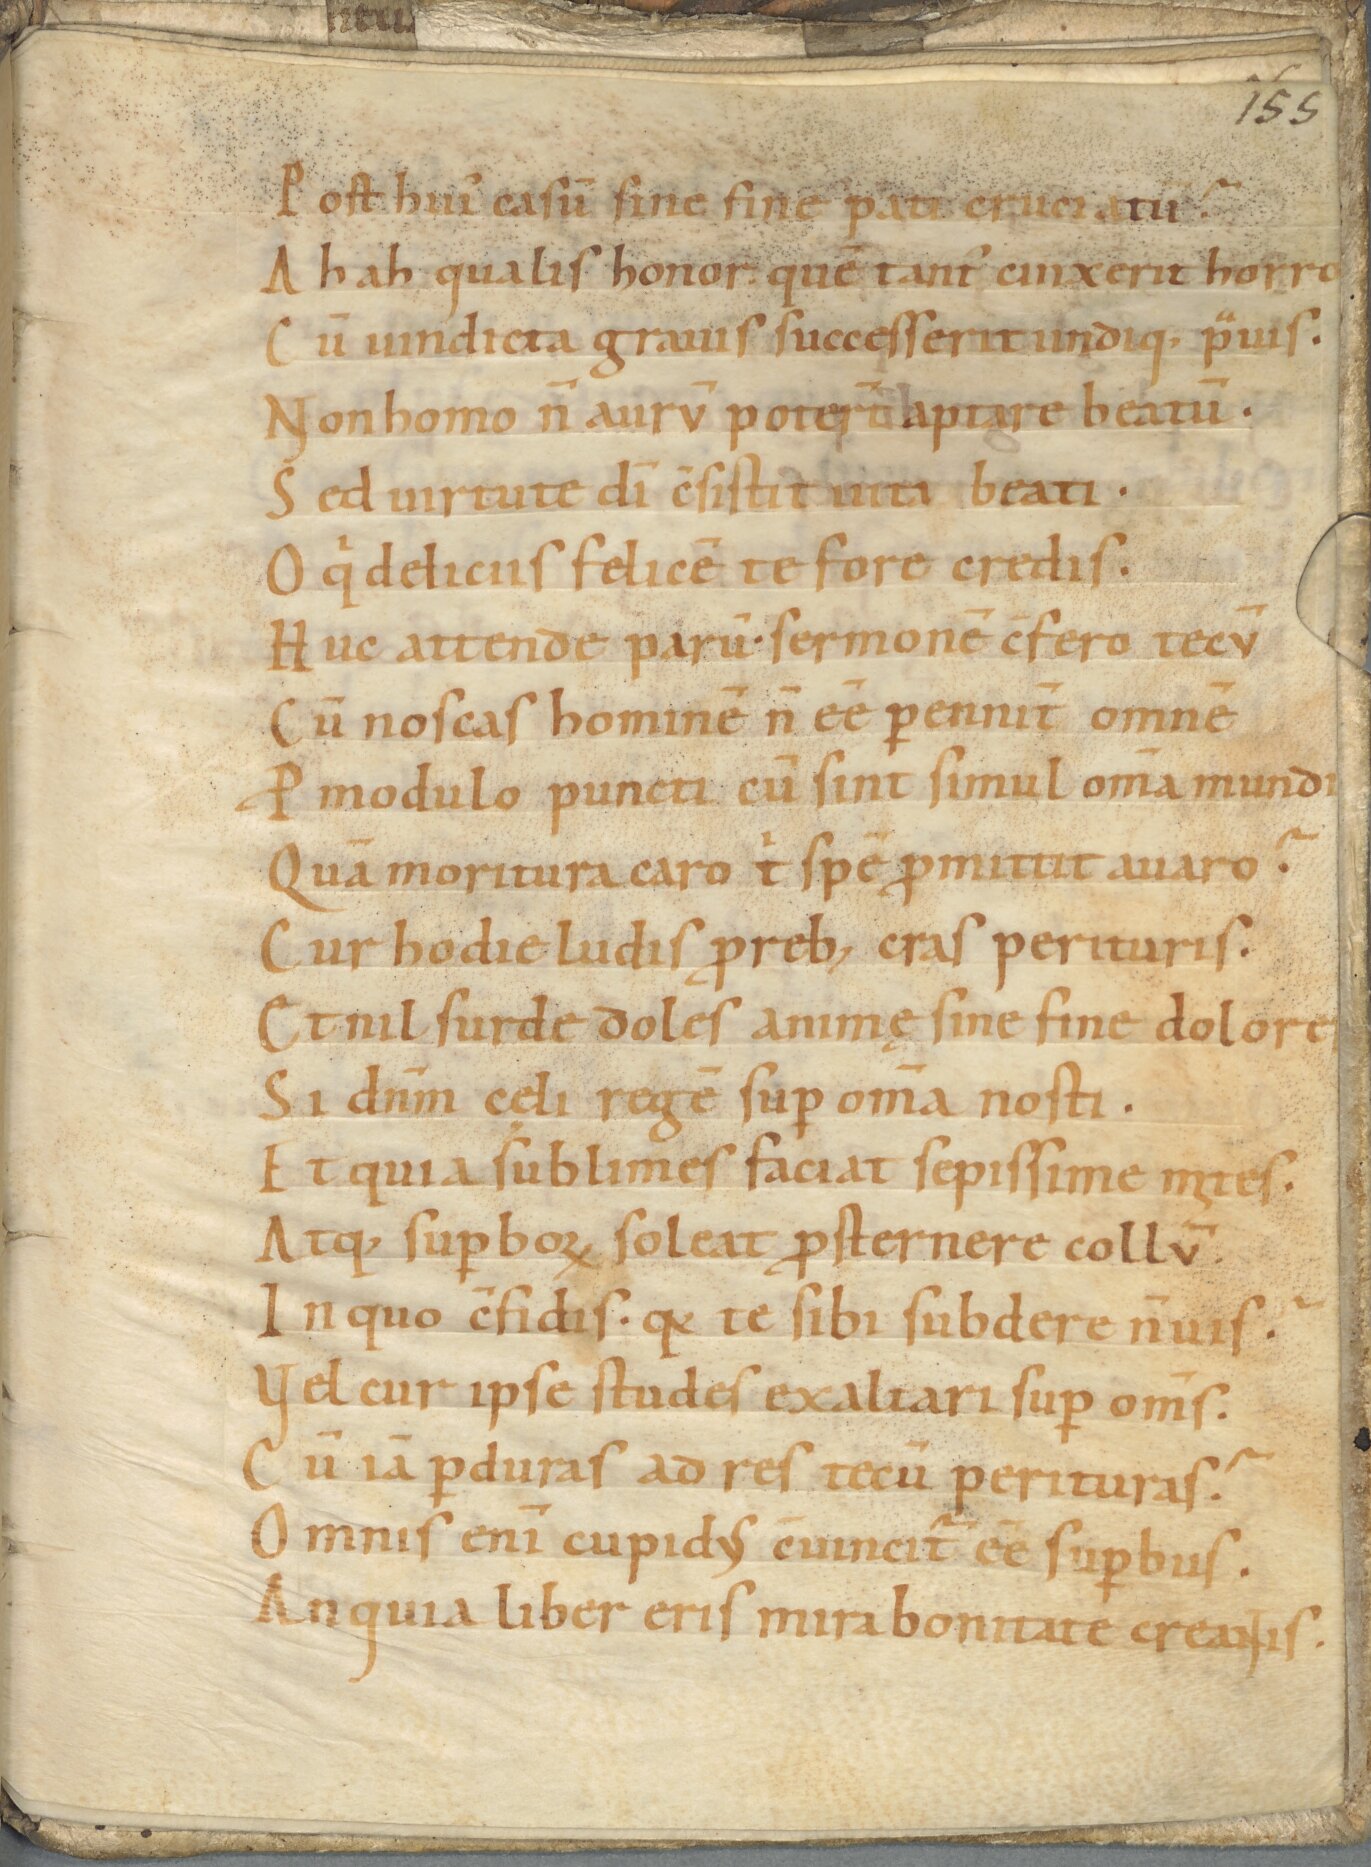 155
Post hui᾽ casū sine fine pati cruciatū?
Ah ah qualis honor. quē tant᾽ cinxerit horro
Cū uindicta grauis successerit undiq; p̈uis.
Non homo n̄ aurū poterit̄ aptare beatū.
Sed uirtute dī c̄sistit uita beati.
O qͥ deliciis felicē te fore credis.
Huc attende parū. sermonē c̄fero tecū
Cū noscas hominē n̄ eē ꝑennit̄ omnē
P modulo puncti cū sint simul om̄a mundi
Quā moritura caro tͥ spē ꝓmittit auaro?
Cur hodie ludis ꝓreb; cras perituris.
Et nil surde doles animę sine fine dolore
Si dn̄m cęli regē suꝑ om̄a nosti.
Et quia sublimes faciat sepissime m̄tes.
Atq; suꝑboꝝ soleat ꝓsternere collū.
In quo c̄fidis. qͣ te sibi subdere n̄ uis?
Vel cur ipse studes exaltari suꝑ om̄s.
Cū iā ꝑduras ad res tecū perituras?
Omnis enī cupidus c̄uincit̄ eē suꝑbus.
An quia liber eris mira bonitate creantis.